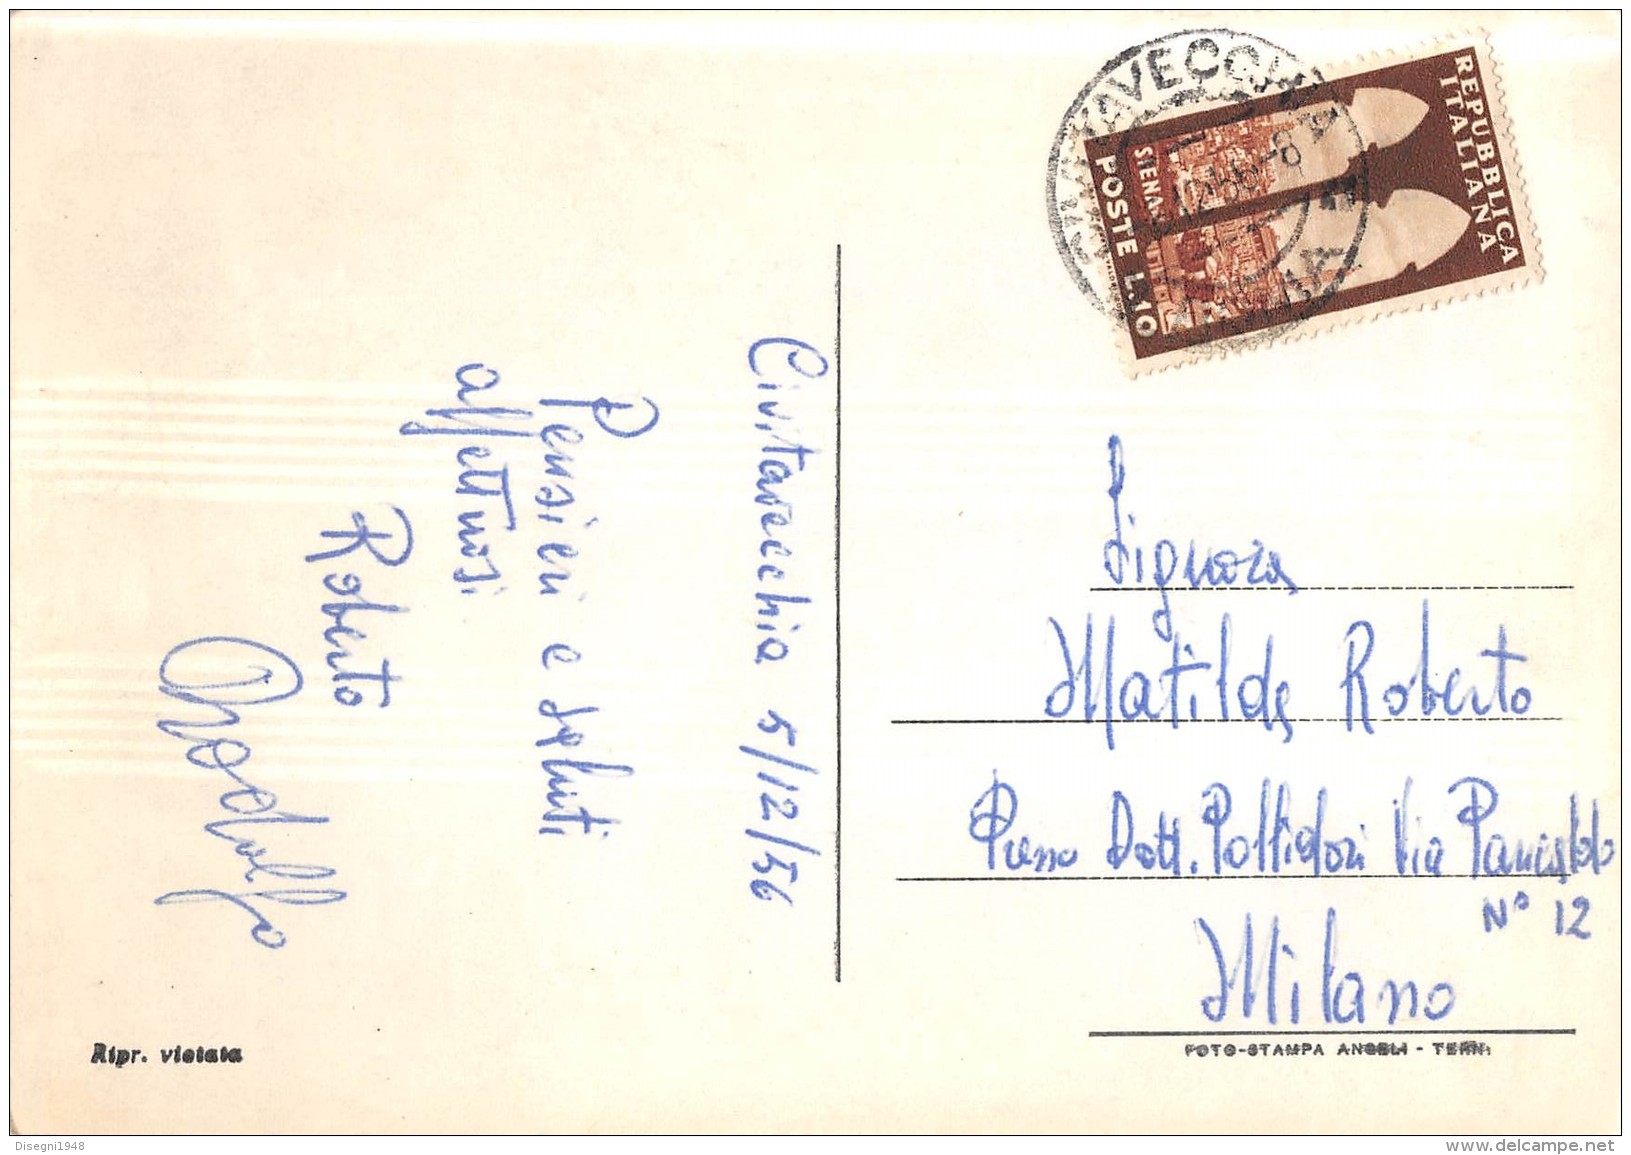 Civitavecchia 5/12/56
Pensieri e saluti
affettuosi
Roberto
REPUBBLICA
ITALIANA
SIENA
POSTE L.10
Signora
Matilde Roberto
Presso Dott. Pollidori Via Pancaldo
N° 12
Milano
Ripr. vietata
FOTO-STAMPA ANGELI - TERNI
Disegni1948
www.delcampe.net